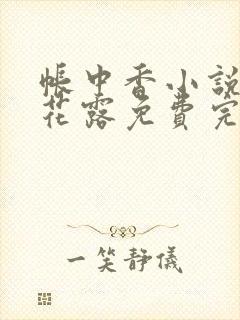 帳中香小說
花露免費完
一笑靜儀